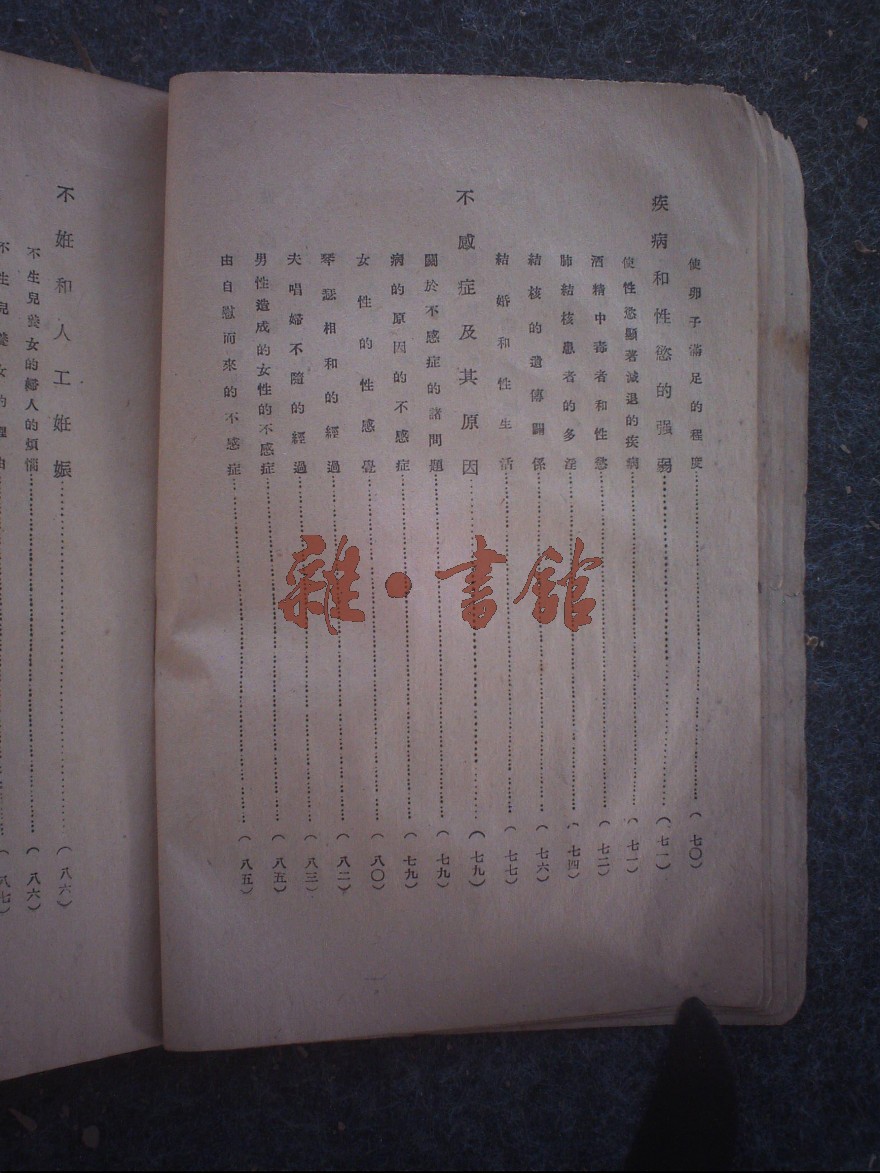 使卵子滿足的程度……(七〇)
疾病和性慾的强弱……(七一)
使性慾顯著減退的疾病……(七一)
酒精中毒者和性慾……(七二)
肺結核患者的多淫……(七四)
結核的遺傳關係……(七六)
結婚和性生活……(七七)
不感症及其原因……(七九)
關於不感症的諸問題……(七九)
病的原因的不感症……(七九)
女性的性感覺……(八〇)
琴瑟相和的經過……(八二)
夫唱婦不隨的經過……(八三)
男性造成的女性的不感症……(八五)
由自慰而來的不感症……(八五)
不妊和人工妊娠……(八六)
不生兒養女的婦人的煩惱……(八六)
不生兒養女的理由……(八七)
雜·書館